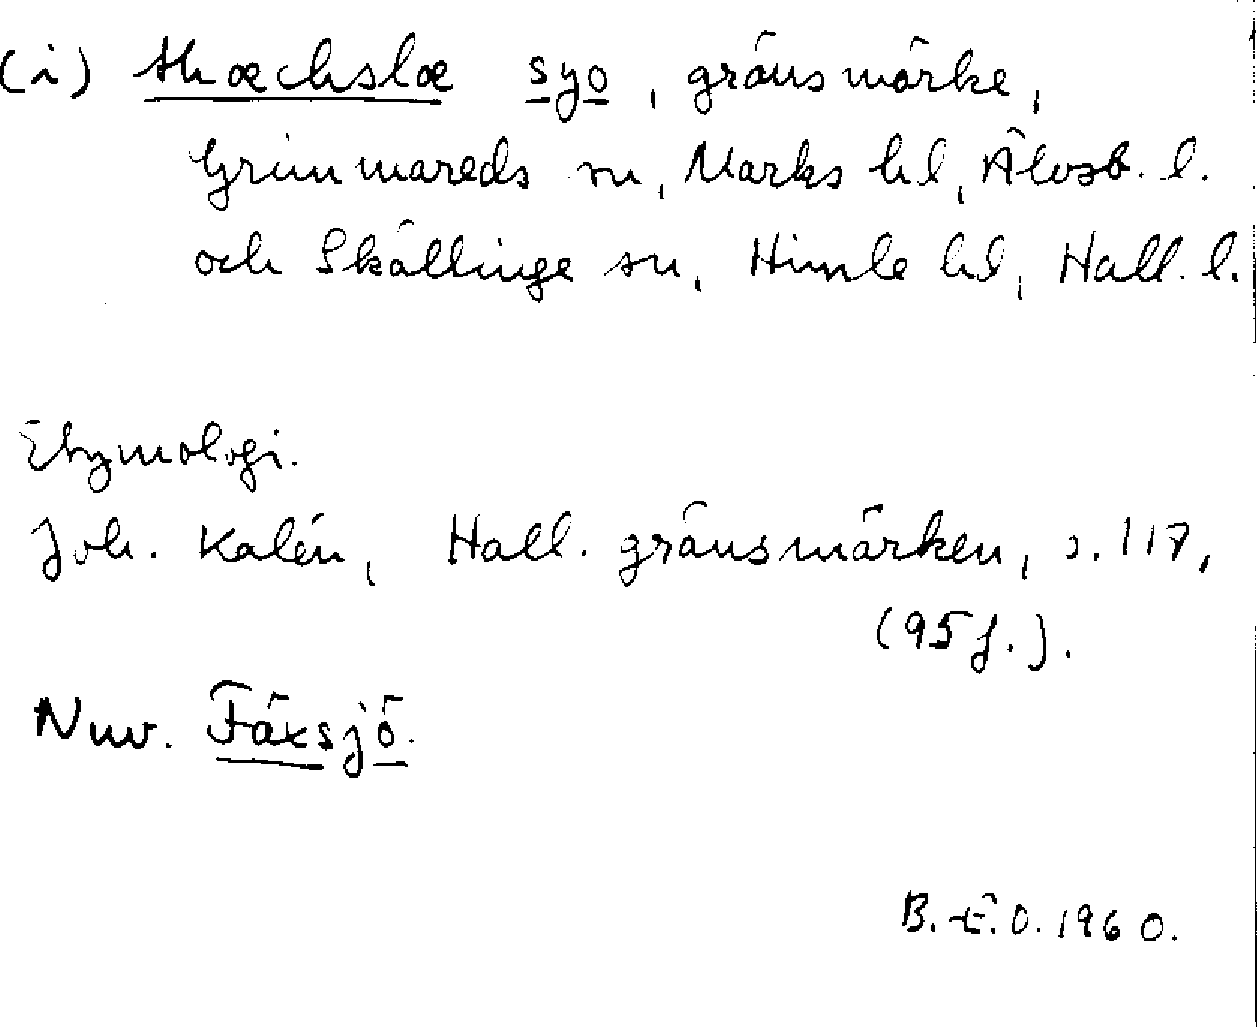 (i) thæchslæ syo, gränsmärke,
Grimmareds sn, Marks hd, Älvsb. l.
och Skällinge sn, Himle hd, Hall. l.
Etymologi.
Joh. Kalén, Hall. gränsmärken, s. 117,
(95 f.).
Nuv. Fäxsjö.
B. E. O. 1960.